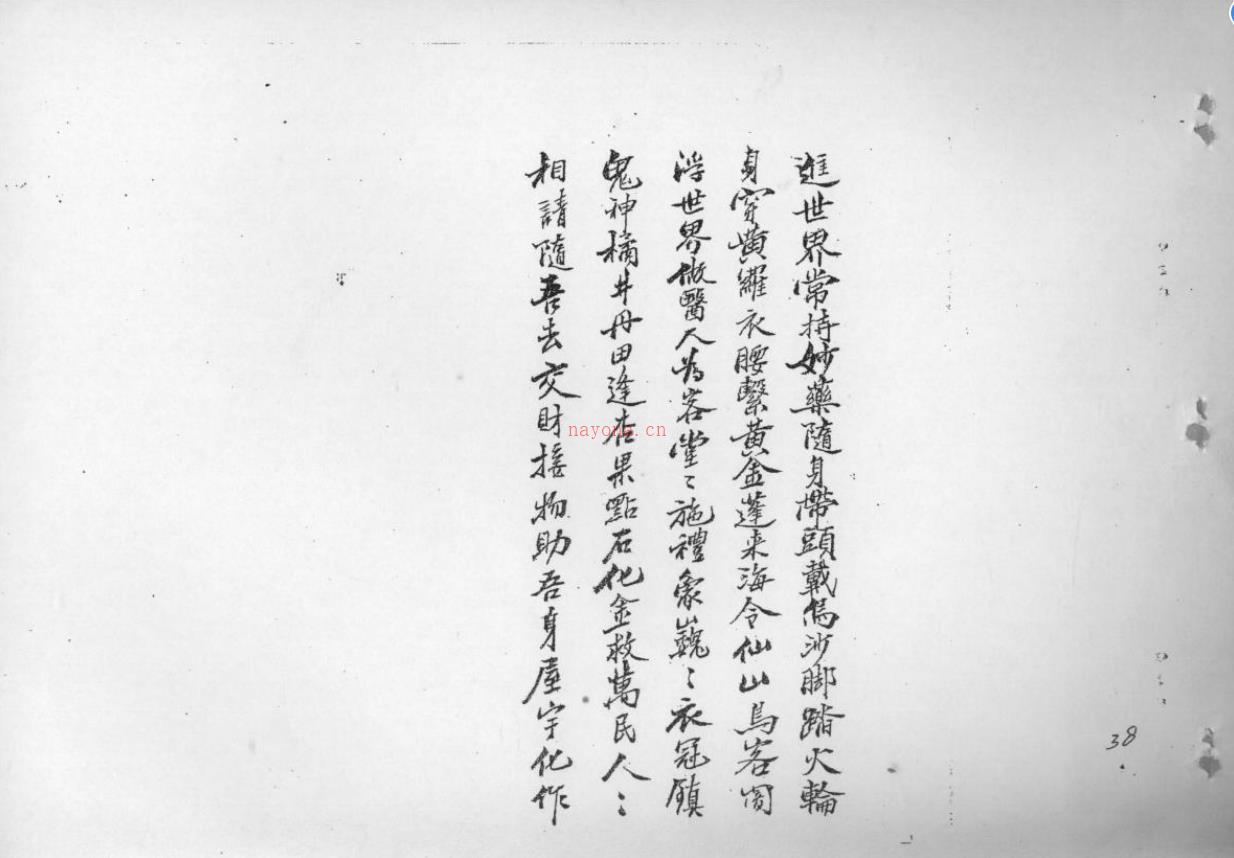 進世界常持妙藥隨身帶頭戴烏沙脚踏火輪
身穿黄羅衣腰繫黃金蓬来海令仙山烏客閣
浮世界做醫人為客堂〻施禮象巍〻衣冠鎮
鬼神橘井丹田逢在果點石化金救萬民人〻
相請隨吾去交財接物助吾身屋宇化作
nayona.cn
38